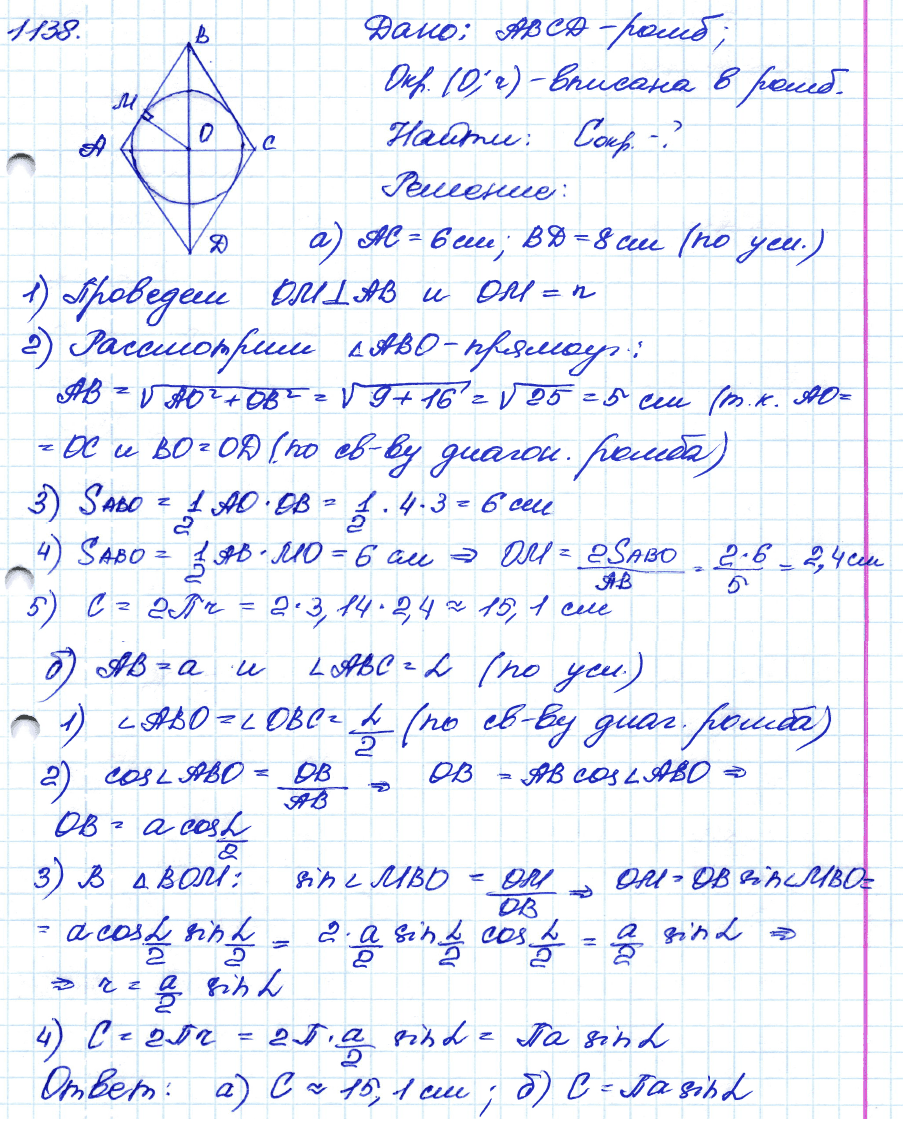 1138.
B
M
A
O
C
D
Дано: ABCD - ромб;
Окр. (O; r) - вписана в ромб.
Найти: Cокр. - ?
Решение:
а) AC = 6 см; BD = 8 см (по усл.)
1) Проведем OM⊥AB и OM = r
2) Рассмотрим ∠ABO - прямоуг.:
AB = √AO² + OB² = √9 + 16 = √25 = 5 см (т.к. AO =
= OC и BO = OD (по св-ву диагон. ромба)
3) SABO = 1/2 AO · OB = 1/2 · 4 · 3 = 6 см
4) SABO = 1/2 AB · MO = 6 см ⇒ OM = 2SABO/AB = 2·6/5 = 2,4 см
5) C = 2πr = 2 · 3,14 · 2,4 ≈ 15,1 см
б) AB = a и ∠ABC = α (по усл.)
1) ∠ABO = ∠OBC = α/2 (по св-ву диаг. ромба)
2) cos∠ABO = OB/AB ⇒ OB = AB cos∠ABO ⇒
OB = a cos α/2
3) В △BOM: sin∠MBO = OM/OB ⇒ OM = OB sin∠MBO =
= a cos α/2 sin α/2 = 2 · a/2 sin α/2 cos α/2 = a/2 sin α ⇒
⇒ r = a/2 sin α
4) C = 2πr = 2π · a/2 sin α = πa sin α
Ответ: а) C ≈ 15,1 см; б) C = πa sin α